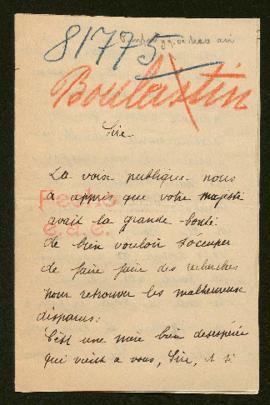 81775
Boulastin
Sire
La voix publique nous
a appris que votre majesté
avait la grande bonté
de bien vouloir s'occuper
de faire faire des recherches
pour retrouver les malheureux
disparus:
C'est une mère bien desespérée
qui vient a vous, Sire, et si